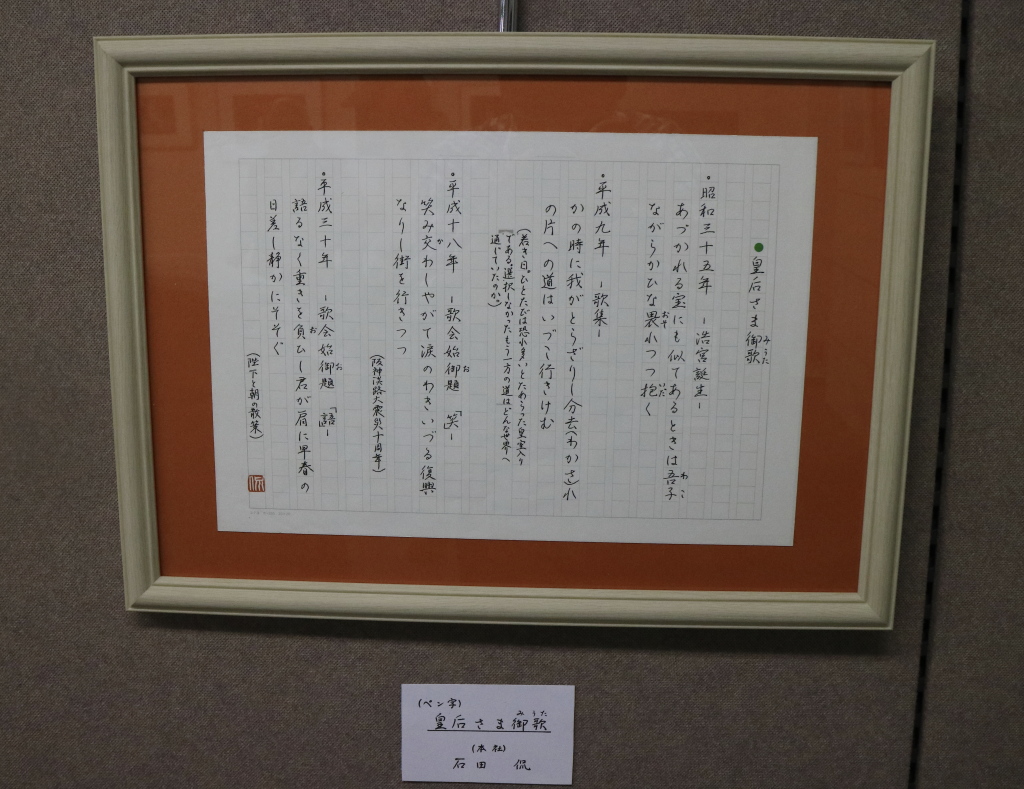 ●皇后さま御歌
みうた
・昭和三十五年 ー浩宮誕生ー
あづかれる宝にも似てあるときは吾子
わこ
ながらかひな畏れつつ抱く
おそ いだ
・平成九年 ー歌集ー
かの時に我がとらざりし分去(わかさ)れ
の片への道はいづこ行きけむ
(若き日。ひとたびは恐れ多いとためらった皇室入り
である。選択しなかったもう一方の道はどんな世界へ
通じていたのか)
・平成十八年 ー歌会始御題「笑ー
お
笑み交わしやがて涙のわきいづる復興
か
なりし街を行きつつ
(阪神淡路大震災十周年)
・平成三十年 ー歌会始御題「語ー
お
語るなく重きを負ひし君が肩に早春の
お
日差し静かにそそぐ
(陛下と朝の散策)
侃
(ペン字)
みうた
皇后さま御歌
(本社)
石田 侃